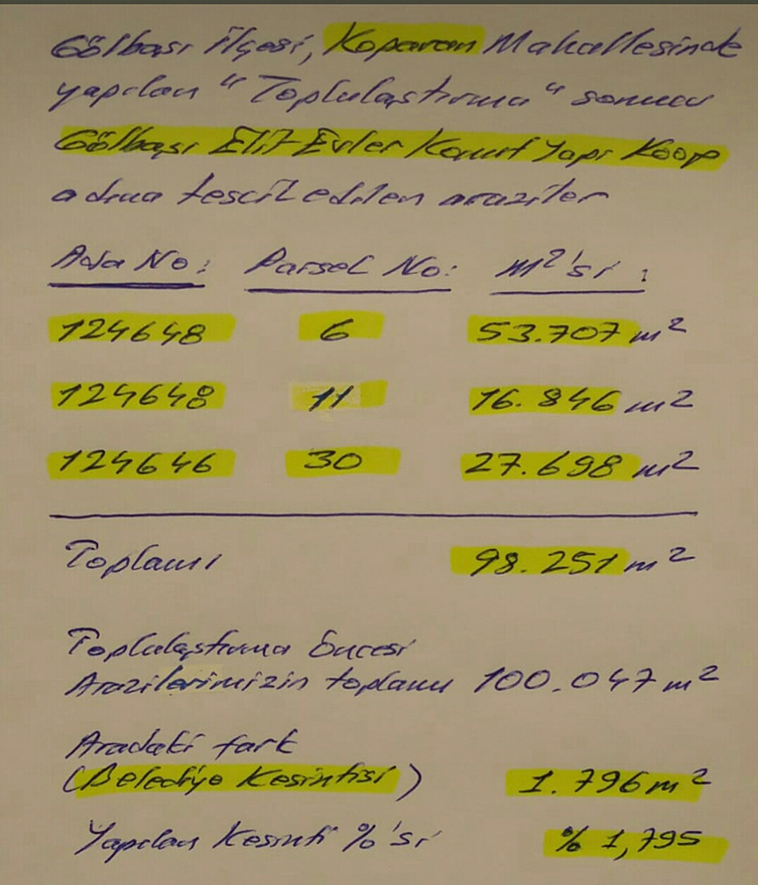 Gölbaşı İlçesi, Koparan Mahallesinde
yapılan "Toplulaştırma" sonucu
Gölbaşı Elit Evler Konut Yapı Koop
adına tescil edilen araziler
Ada No: Parsel No: m²'si:
124648 6 53.707 m²
124648 11 16.846 m²
124646 30 27.698 m²
Toplamı 98.251 m²
Toplulaştırma Öncesi
Arazilerimizin toplamı 100.047 m²
Aradaki fark
(Belediye Kesintisi) 1.796 m²
Yapılan Kesinti %'si % 1,795